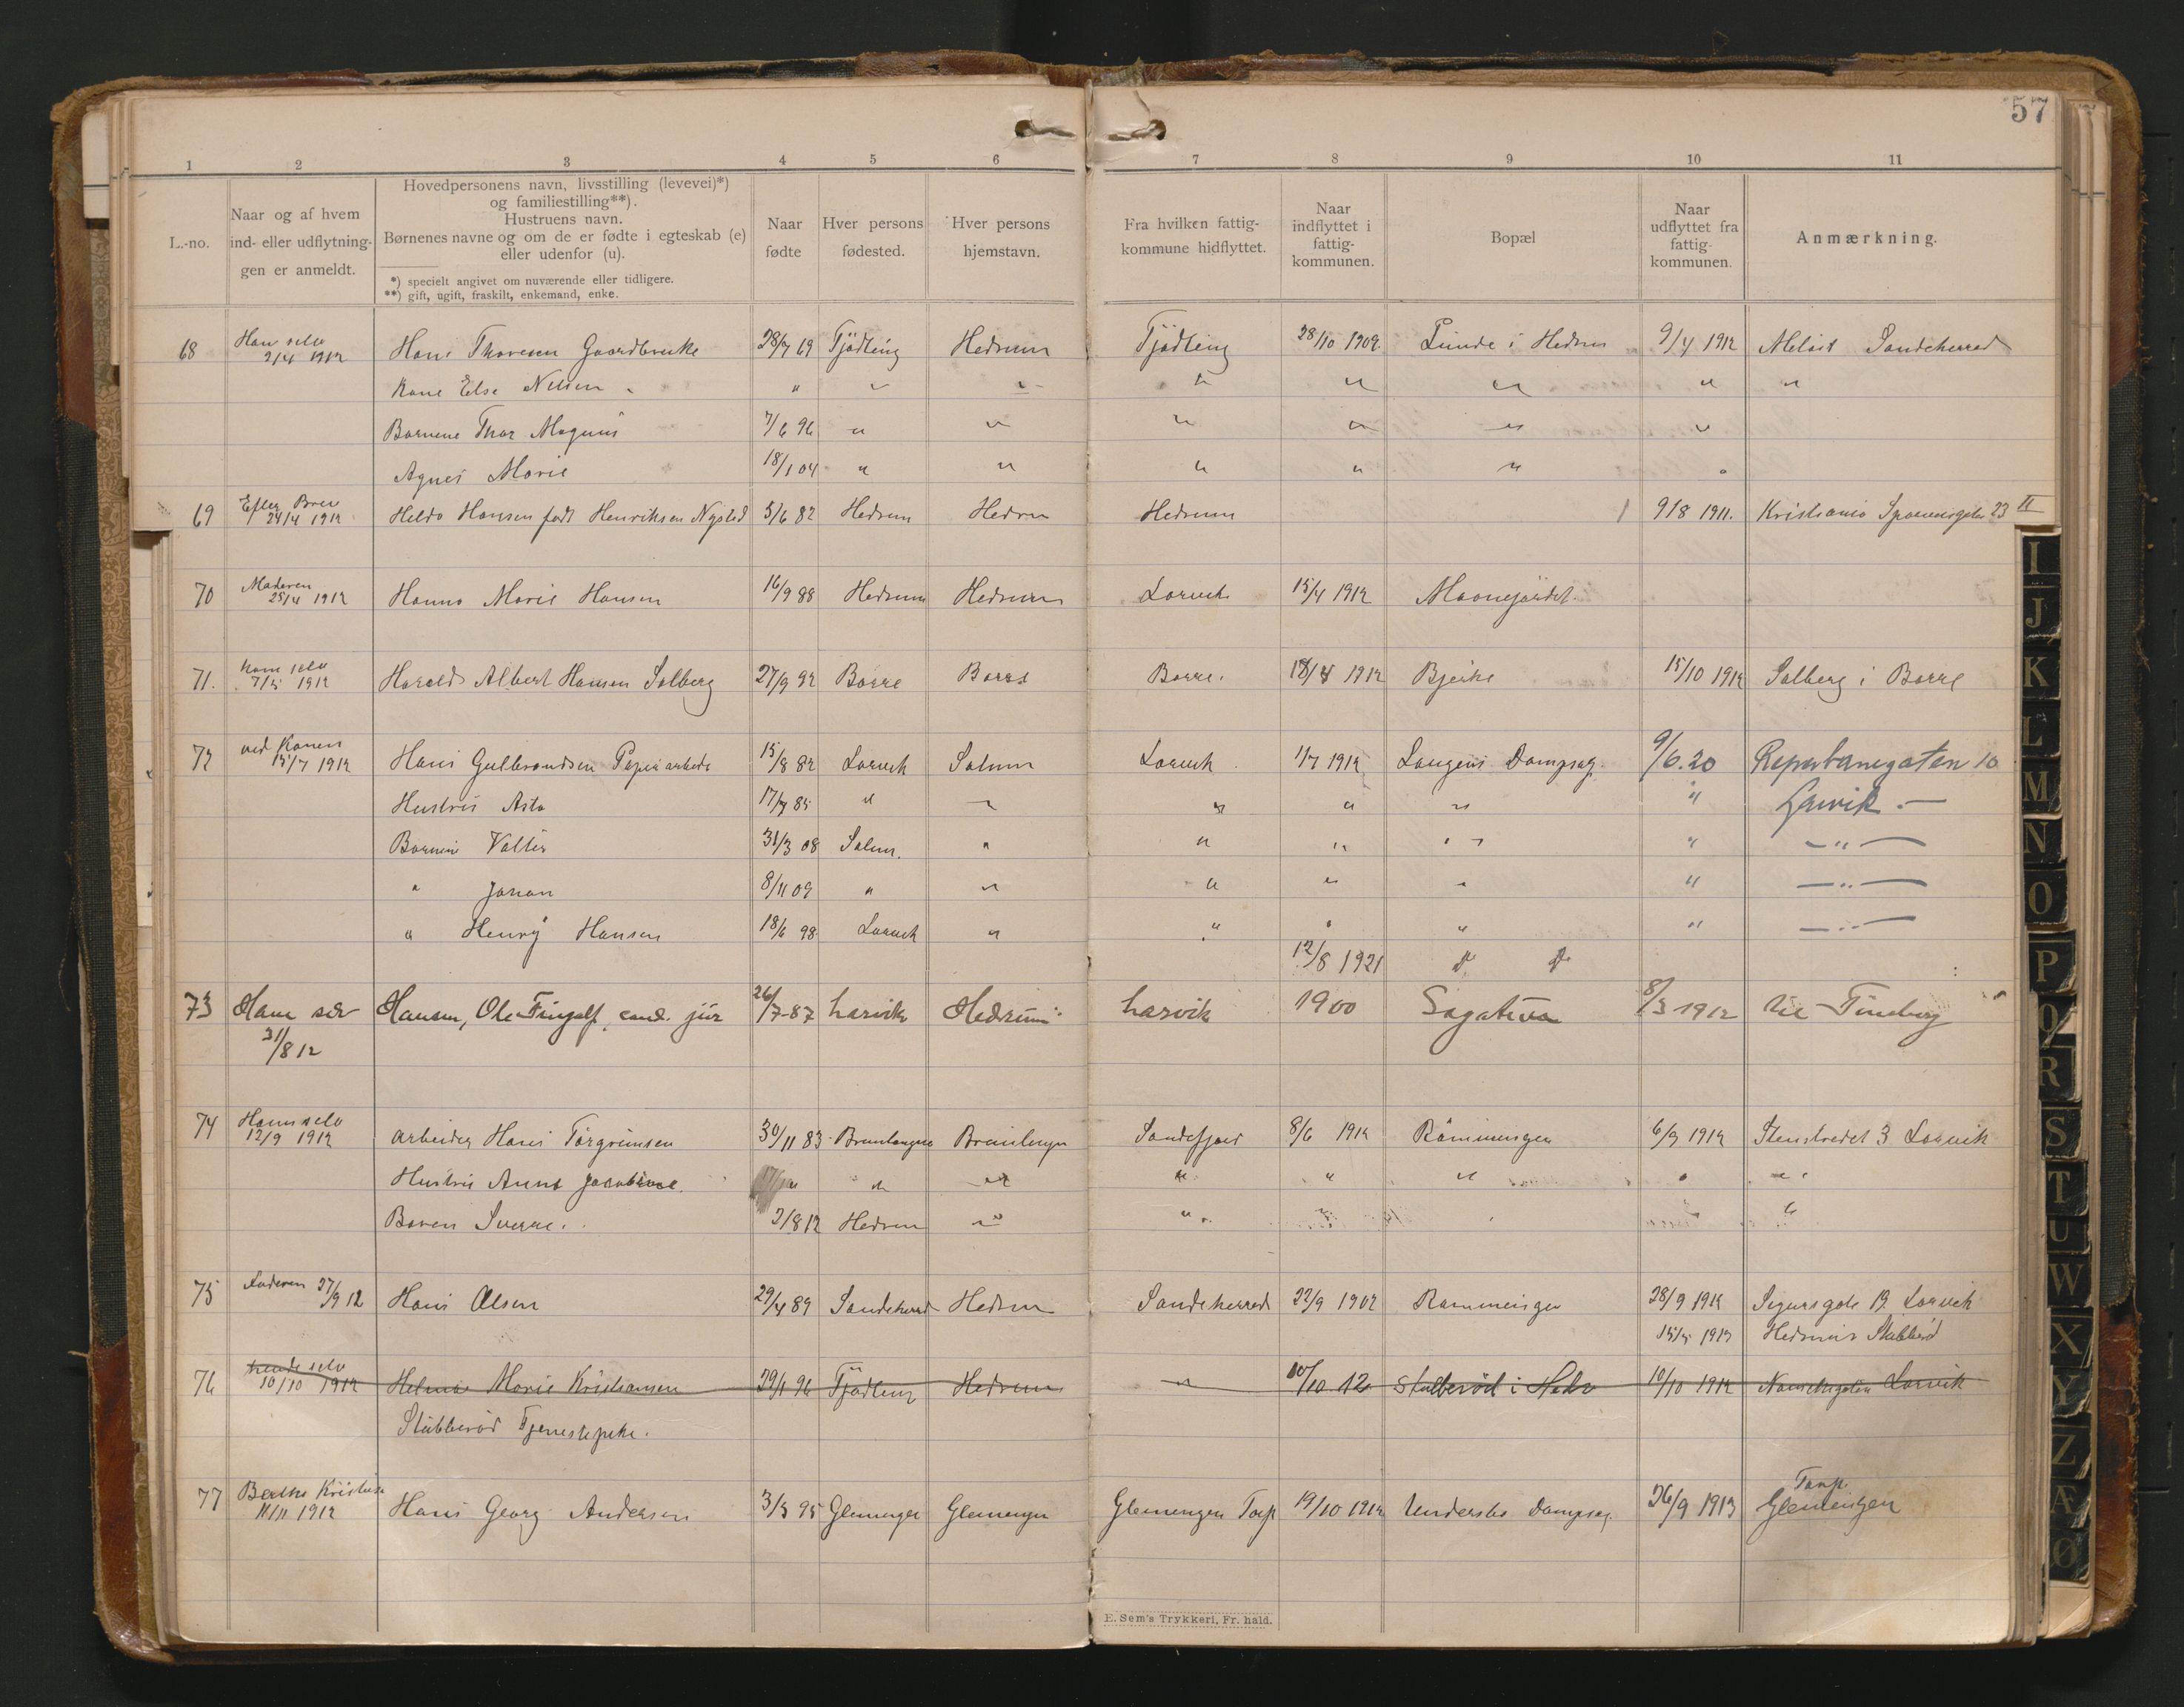 57
1 2 3 4 5 6 7 8 9 10 11
L.-no.
Naar og af hvem
ind- eller udflytnin-
gen er anmeldt.
Hovedpersonens navn, livsstilling (levevei)*)
og familiestilling**).
Hustruens navn.
Børnenes navne og om de er fødte i egteskab (e)
eller udenfor (u).
*) specielt angivet om nuværende eller tidligere.
**) gift, ugift, fraskilt, enkemand, enke.
Naar
fødte
Hver persons
fødested.
Hver persons
hjemstavn.
Fra hvilken fattig-
kommune hidflyttet.
Naar
indflyttet i
fattig-
kommunen.
Bopæl
Naar
udflyttet fra
fattig-
kommunen.
Anmærkning.
68 Han selv 2/4 1912 Hans Thoresen Gaardbruke 28/7 69 Tjødling Hedrum Tjødling 28/10 1909 Lunde i Hedrum 9/4 1912 Sandeherred
Kone Else Nilsen " " " " " " " "
Barnene Thor Magnus 7/6 96 " " " " " "
Agnes Marie 18/1 04 " " " " " "
69 Efter Brev 24/4 1912 Helda Hansen født Henriksen Nysted 5/6 82 Hedrum Hedrum Hedrum 9/8 1911. Kristiania 23 II
70 Moderen 25/4 1912 Hanna Marie Hansen 16/9 88 Hedrum Hedrum Larvik 15/4 1912
71. ham selv 7/5 1912 Harald Albert Hansen Solberg 27/9 92 Borre Borre Borre. 18/4 1912 Bjerke 15/10 1912 Solberg i Borre
72 ved Konen 15/7 1912 Hans Gulbrandsen Papirarbeide 15/8 82 Larvik Solum Larvik 1/7 1912 Laugens Dampsag. 9/6.20 Reperbanegaten 10
Hustru Asta 17/7 85 " " " " " " Larvik.
Barnene Valter 31/3 08 Solum. " " " " " "
" Johan 8/11 09 " " " " " " "
" Henry Hansen 18/6 98 Larvik " " " " " "
12/8 1921
73 Ham selv Hansen, Ole Fingalf, cand. jur 26/7-87 Larvik Hedrum Larvik 1900 Sagatun 8/3 1912 til Tønsberg
31/8 12
74 Ham selv 12/9 1912 Arbeider Hans Torgrimsen 30/11 83 Brunlangnes Brunlangnes Sandefjord 8/6 1912 Rømmingen 6/9 1912 Stenstredet 3 Larvik
Hustru Anna Jacobine. " " " " " " " "
Baren Sverre. 2/8 12 Hedrum " " " "
75 Faderen 27/9 12 Hans Olsen 29/4 89 Sandeherred Hedrum Sandeherred 22/9 1902 Rømmingen 28/9 1912 Sigursgate 19 Larvik
15/5 1913 Hedrum Stubberød
76 hende selv 10/10 1912 Helma Marie Kristiansen 29/1 96 Tjødling Hedrum " 10/10 12 Stubberød i Hedr 10/10 1912 Nansetgaten Larvik
Stubberød Tjenestepike.
77 Berthe Kristiansen 11/11 1912 Hans Georg Andersen 3/3 95 Glemmingen Glemmingen Glemmingen Torp 19/10 1912 Dampsag. 26/9 1913 Torp. Glemmingen
E. Sem's Trykkeri, Fr. hald.
I
J
K
L
M
N
O
P
Q
R
S
T
U
W
X
Y
Z
Æ
Ø